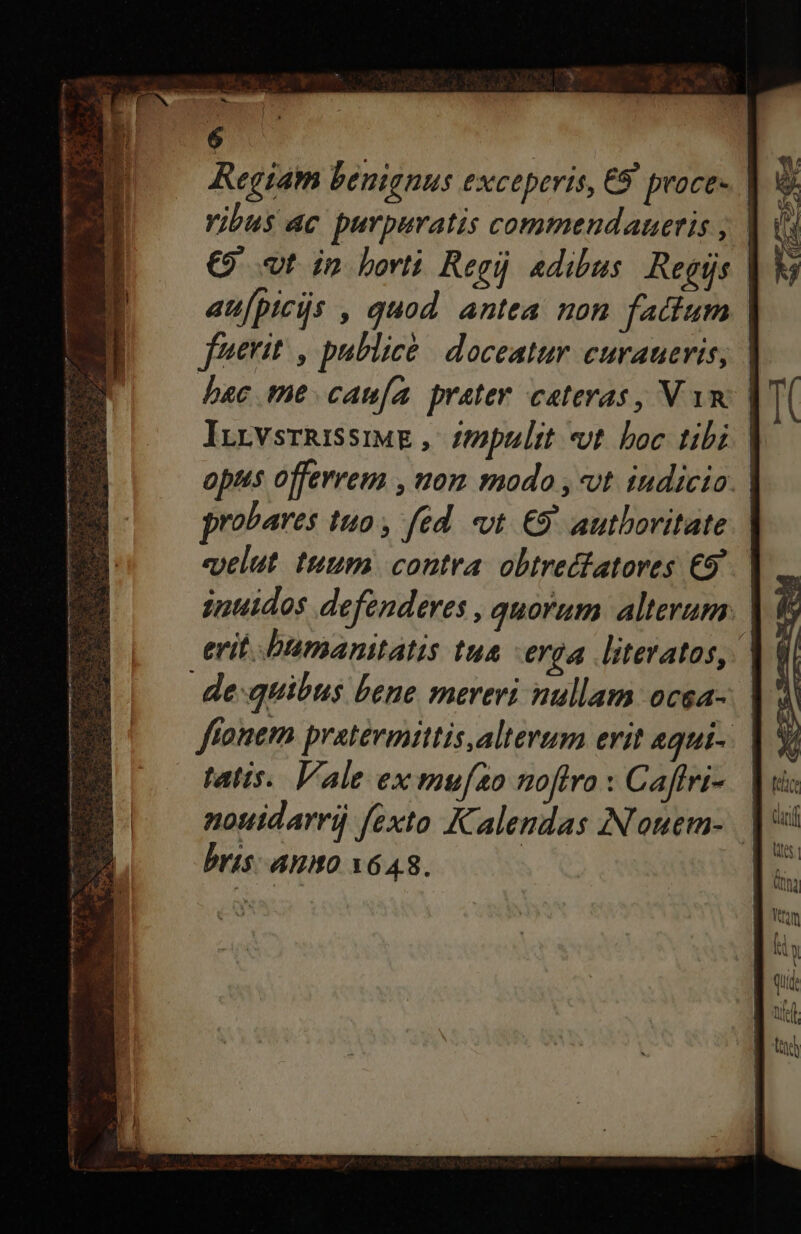 6
Regiam benignus exceperis, & proce-
ribus ac purpuratis commendaueris,
& vt in horti Regij ædibus Regijs
auſpicijs, quod antea non factum
fuerit, publicè doceatur curaueris,
hæc me cauſa præter cæteras, VIR
ILLVSTRISSIME, impulit vt hoc tibi
opus offerrem, non modo, vt iudicio
probares tuo, ſed vt & authoritate
velut tuum contra obtrectatores &
inuidos defenderes, quorum alterum
erit humanitatis tuæ erga literatos,
de quibus bene mereri nullam occa-
ſionem prætermittis, alterum erit æqui-
tatis. Vale ex muſæo noſtro: Caſtri-
nouidarrij ſexto Kalendas Nouem-
bris anno 1648.